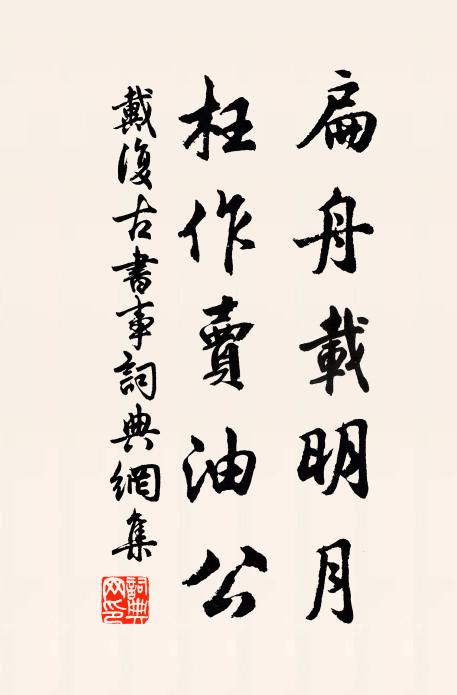 扁舟載明月
枉作賣油公
戴復古書事詞典網集
詞典网印